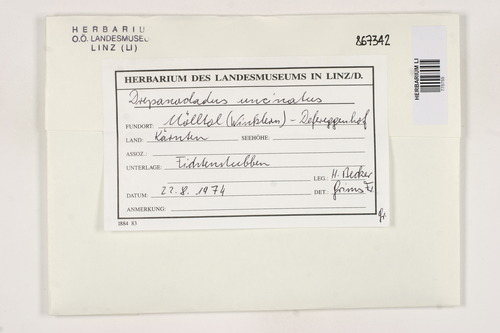 HERBARIU
O.Ö. LANDESMUSEU
LINZ (LI)
867342
HERBARIUM LI
HERBARIUM DES LANDESMUSEUMS IN LINZ/D.
Drepanocladus uncinatus
FUNDORT: Mölltal (Winklern) - Defereggenhof
LAND: Kärnten SEEHÖHE:
ASSOZ.:
UNTERLAGE: Fichtenstubben
LEG.: H. Becker
DATUM: 22.8.1974 DET.: Grims Fr.
ANMERKUNG:
I884 83
Gr.